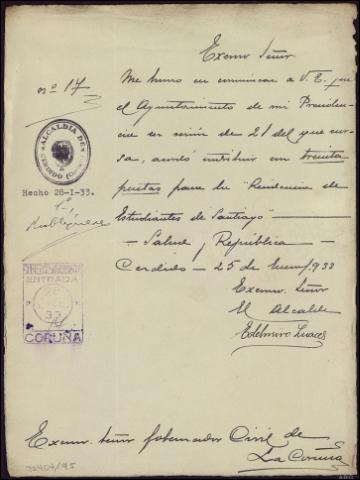 Excmo Señor
nº 17
Me honro en comunicar a V.E. que
el Ayuntamiento de mi Presiden-
cia en sesión de 21 del que cur-
sa, acordó contribuir con treinta
pesetas para la "Residencia de
Estudiantes de Santiago"
- Salud y República -
Cerdido - 25 de Enero/933
Excmo. Señor
El Alcalde
Edelmiro
ALCALDIA DE
CERDIDO
Hecho 28-I-33.
Publíquese
ENTRADA
33
CORUÑA
Excmo. Señor Gobernador Civil de
La Coruña